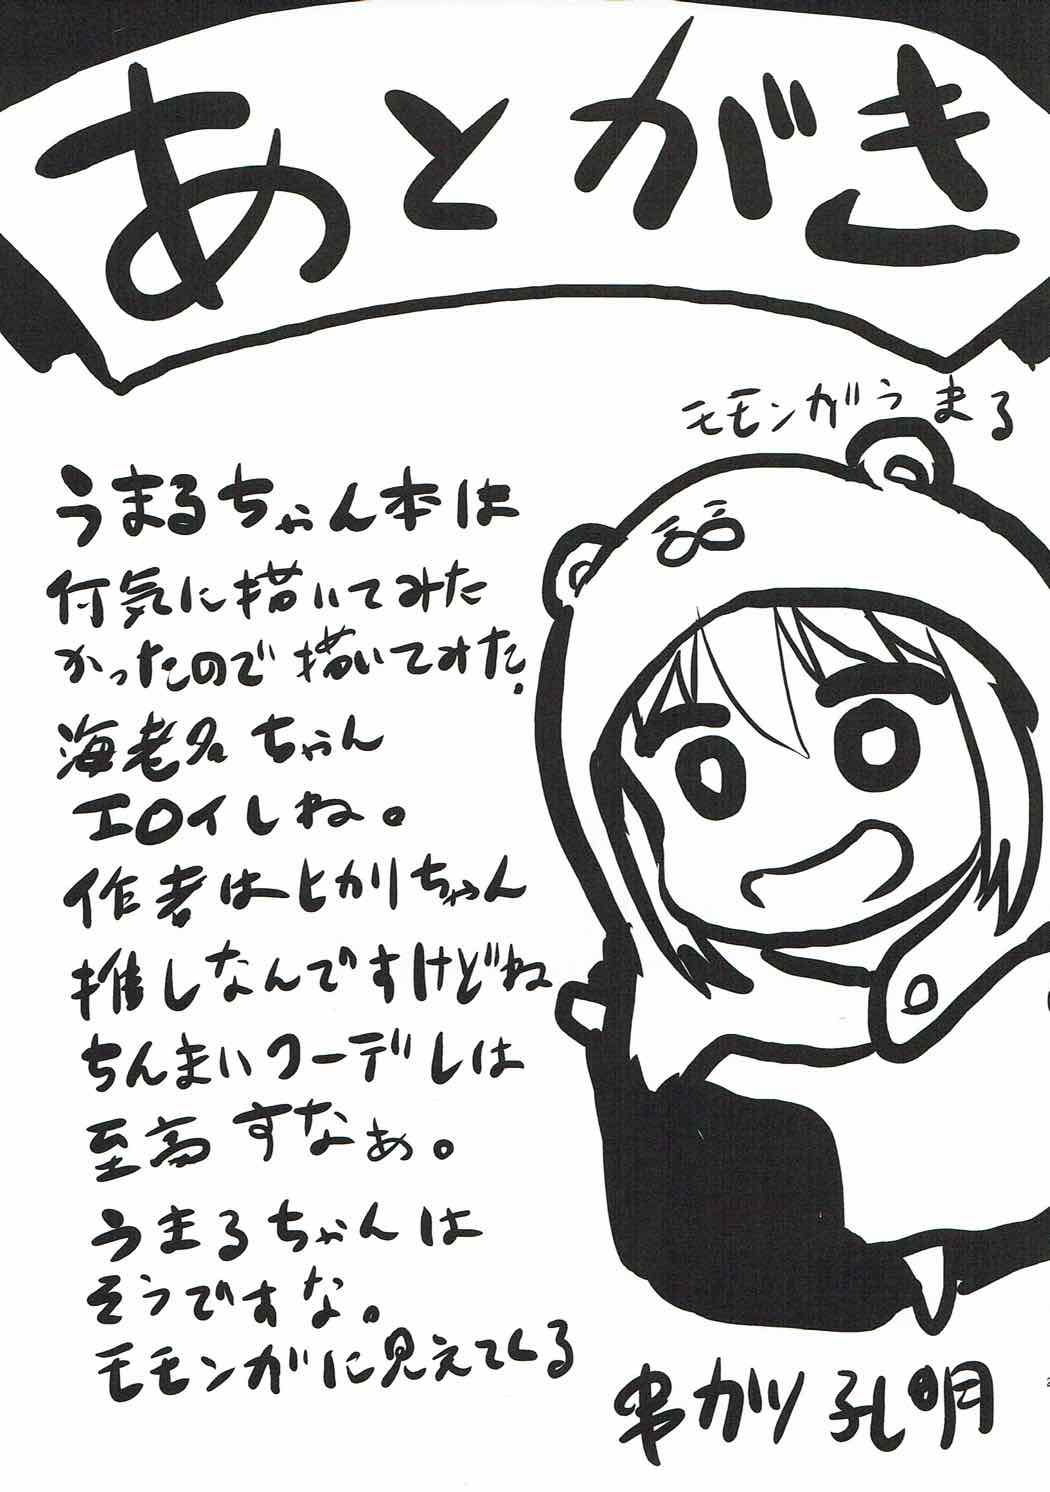 あとがき
モモンがうまる
うまるちゃん本は
何気に描いてみた
かったので描いてみた。
海老名ちゃん
エロイしね。
作者はヒカリちゃん
推しなんですけどね
ちんまいクーデレは
至高すなぁ。
うまるちゃんは
そうですな。
モモンガに見えてくる
串カツ孔明